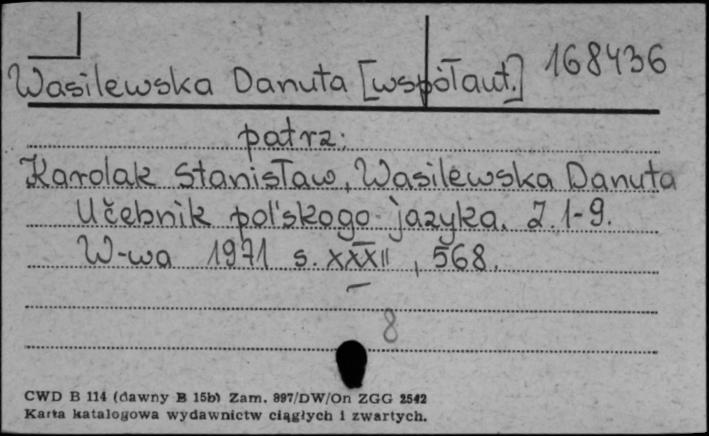 168436
Wasilewska Danuta [współaut.]
patrz:
Karolak Stanisław, Wasilewska Danuta
Učebnik pol'skogo jazyka. Z. 1-9.
W-wa 1971 s. XXXII, 568.
8
CWD B 114 (dawny B 15b) Zam. 897/DW/On ZGG 2542
Karta katalogowa wydawnictw ciągłych i zwartych.